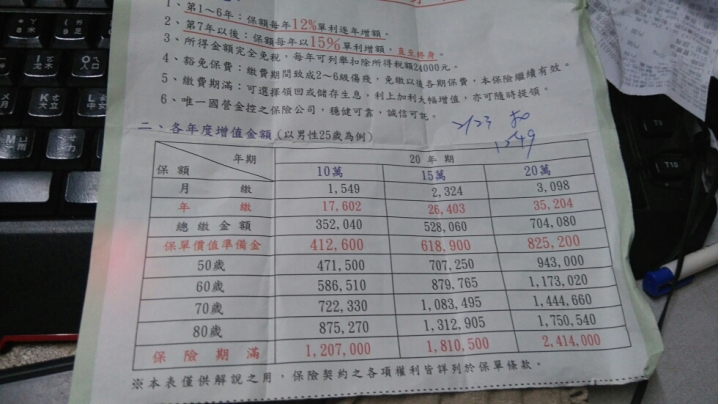 1、第1~6年：保額每年12%單利逐年增額。
2、第7年以後：保額每年以15%單利增額，直至終身。
3、所得金額完全免稅，每年可列舉扣除所得稅額24000元。
4、豁免保費：繳費期間致成2~6級傷殘，免繳以後各期保費，本保險繼續有效。
5、繳費期滿：可選擇領回或儲存生息，利上加利大幅增值，亦可隨時提領。
6、唯一國營金控之保險公司，穩健可靠，誠信可託。
2/23
1549
二、各年度增值金額（以男性25歲為例）
年期 20年期
保額 10萬 15萬 20萬
月繳 1,549 2,324 3,098
年繳 17,602 26,403 35,204
總繳金額 352,040 528,060 704,080
保單價值準備金 412,600 618,900 825,200
50歲 471,500 707,250 943,000
60歲 586,510 879,765 1,173,020
70歲 722,330 1,083,495 1,444,660
80歲 875,270 1,312,905 1,750,540
保險期滿 1,207,000 1,810,500 2,414,000
※本表僅供解說之用，保險契約之各項權利皆詳列於保單條款。
T10